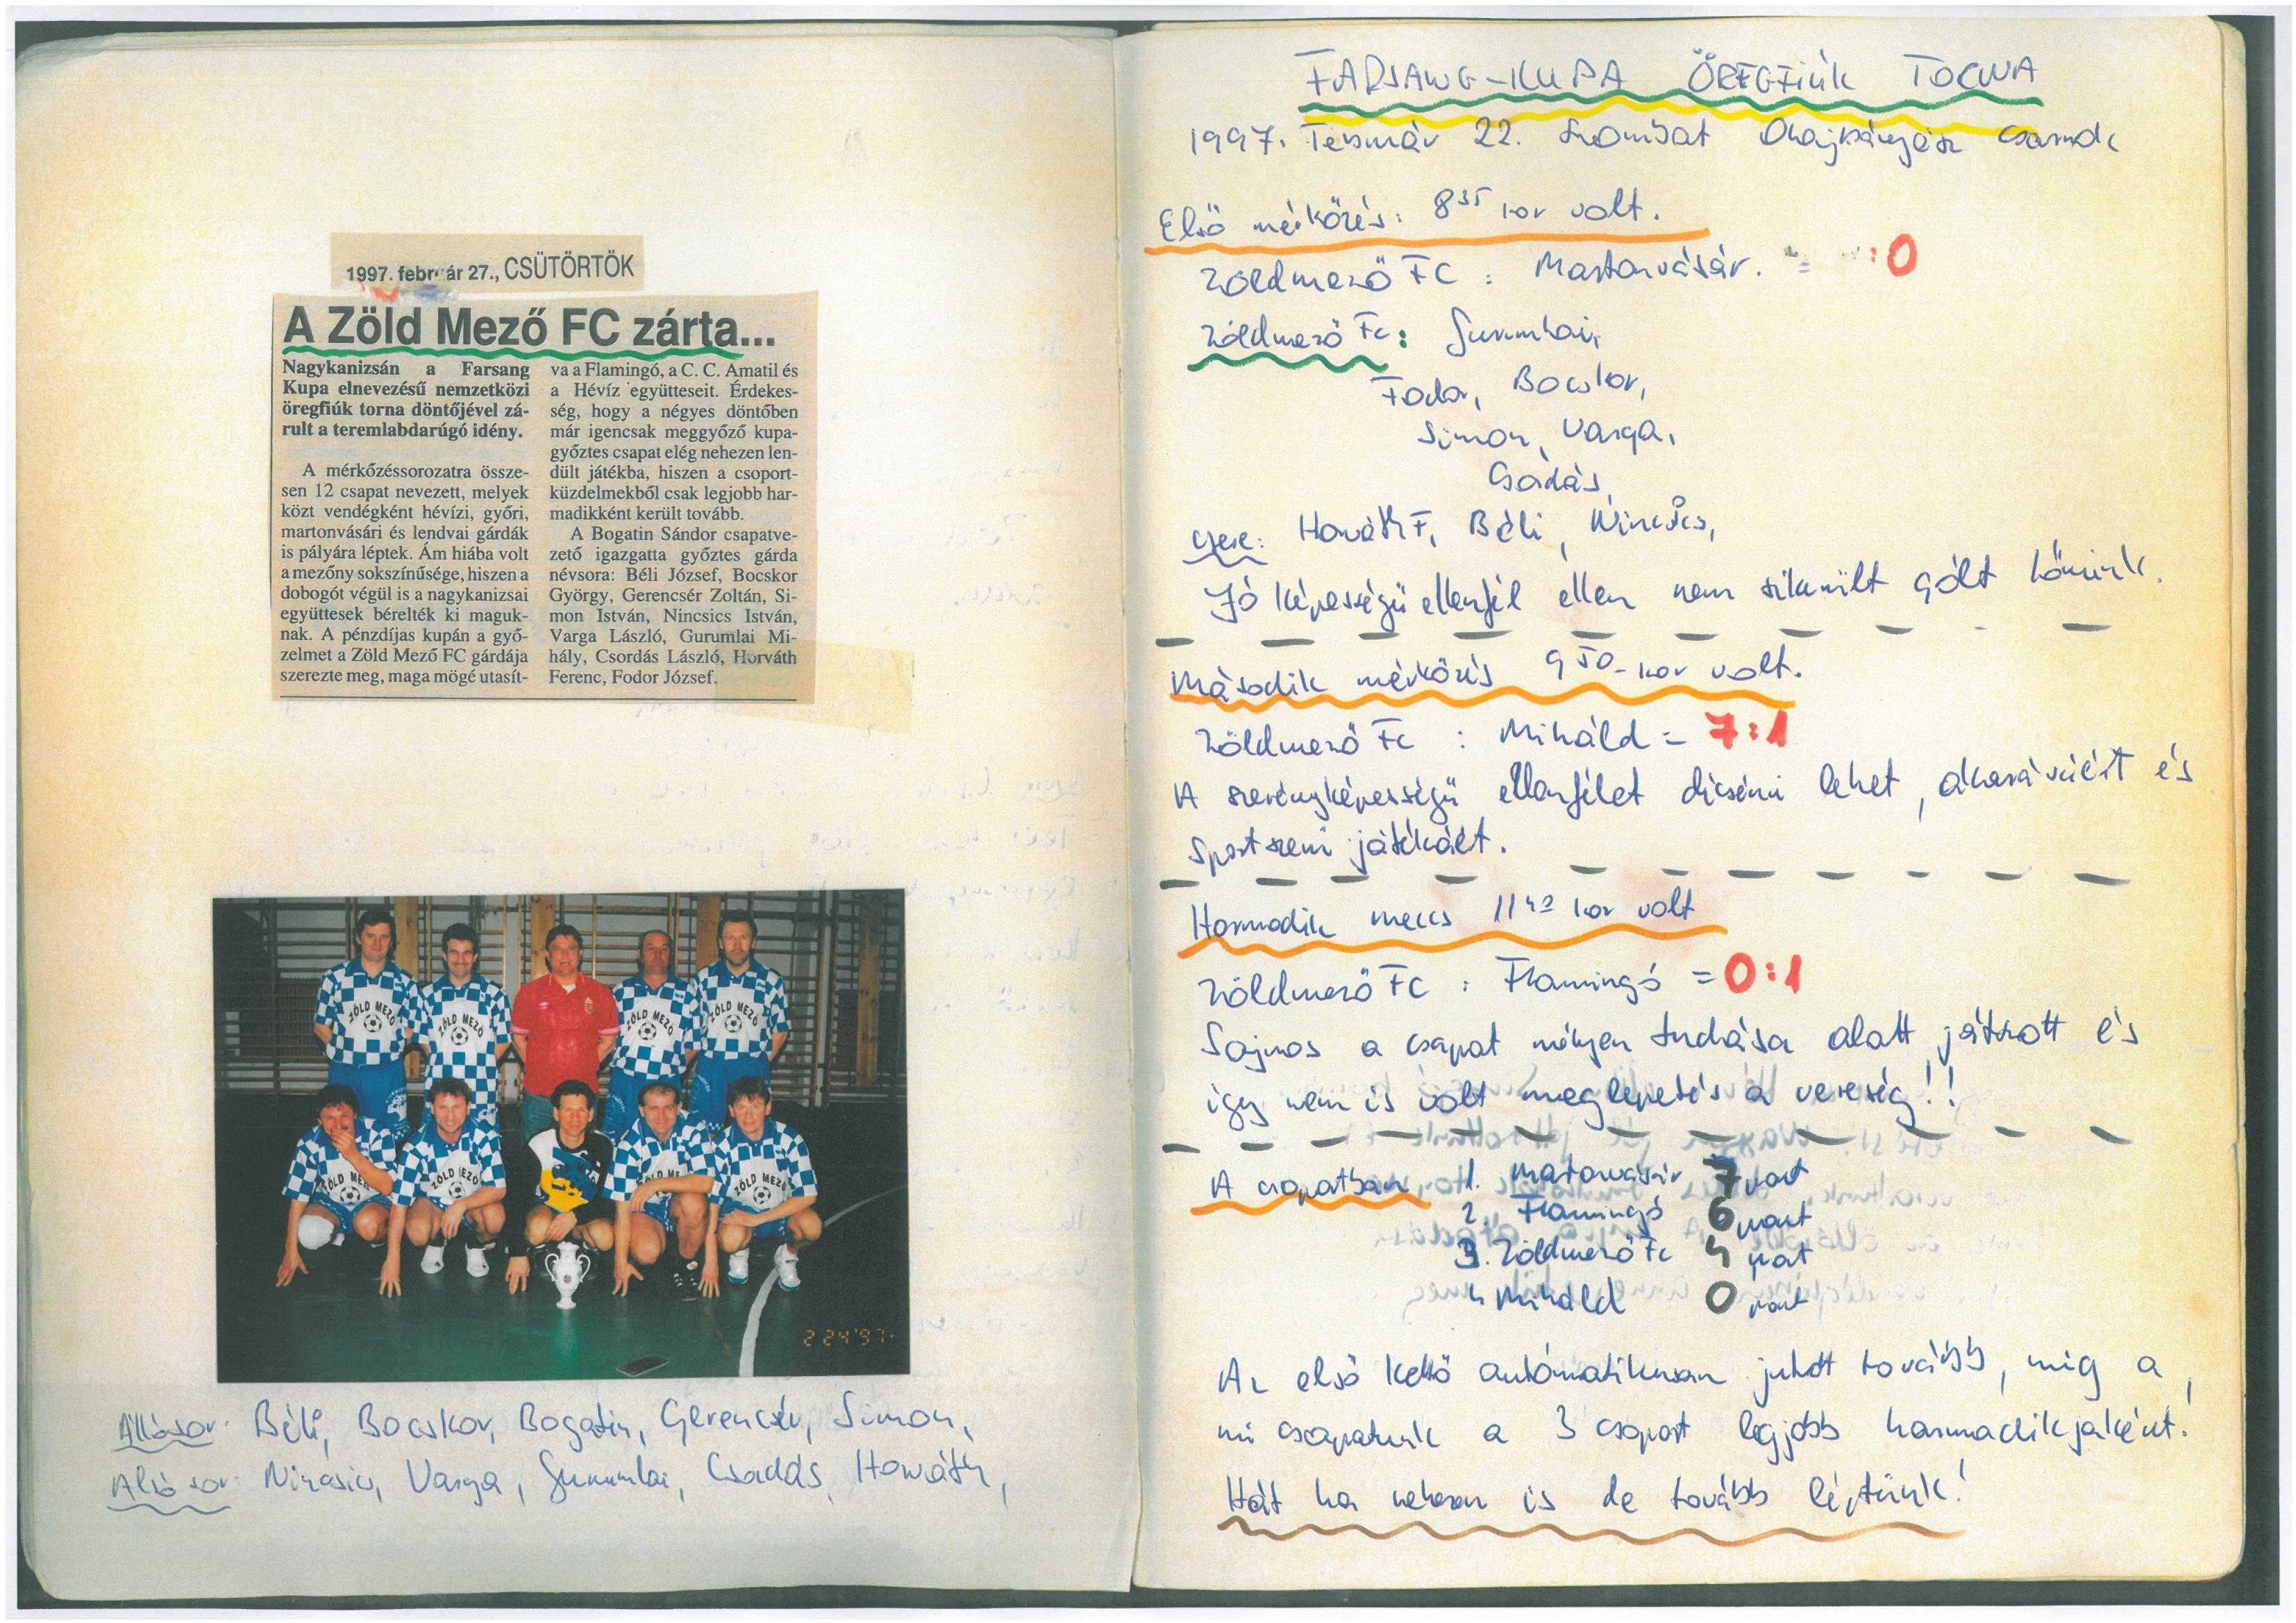 1997. február 27., CSÜTÖRTÖK
A Zöld Mező FC zárta...
Nagykanizsán a Farsang
Kupa elnevezésű nemzetközi
öregfiúk torna döntőjével zá-
rult a teremlabdarúgó idény.
A mérkőzéssorozatra össze-
sen 12 csapat nevezett, melyek
közt vendégként hévízi, győri,
martonvásári és lendvai gárdák
is pályára léptek. Ám hiába volt
a mezőny sokszínűsége, hiszen a
dobogót végül is a nagykanizsai
együttesek bérelték ki maguk-
nak. A pénzdíjas kupán a győ-
zelmet a Zöld Mező FC gárdája
szerezte meg, maga mögé utasít-
va a Flamingó, a C. C. Amatil és
a Hévíz együtteseit. Érdekes-
ség, hogy a négyes döntőben
már igencsak meggyőző kupa-
győztes csapat elég nehezen len-
dült játékba, hiszen a csoport-
küzdelmekből csak legjobb har-
madikként került tovább.
A Bogatin Sándor csapatve-
zető igazgatta győztes gárda
névsora: Béli József, Bocskor
György, Gerencsér Zoltán, Si-
mon István, Nincsics István,
Varga László, Gurumlai Mi-
hály, Csordás László, Horváth
Ferenc, Fodor József.
ZÖLD MEZŐ
ZÖLD MEZŐ
ZÖLD MEZŐ
ZÖLD MEZŐ
ZÖLD MEZŐ
ZÖLD MEZŐ
ZÖLD MEZŐ
ZÖLD MEZŐ
2 24'97
Állósor: Béli, Bocskor, Bogatin, Gerencsér, Simon,
Alsó sor: Nincsics, Varga, Gurumlai, Csodás, Horváth,
FARSANG-KUPA ÖREGFIÚK TORNA
1997. Február 22. Szombat Olajbányász csarnok
Első mérkőzés: 8 35 kor volt.
Zöldmező FC : Martonvásár. = :0
Zöldmező Fc: Gurumlai,
Fodor, Bocskor,
Simon, Varga,
Csodás,
csere: Horváth F, Béli, Nincsics,
Jó képességű ellenfél ellen nem sikerült gólt lőnünk.
Második mérkőzés 9 50-kor volt.
Zöldmező Fc : Miháld = 7:1
A szerényképességű ellenfélet dicsérni lehet, akarásáért és
Sportszerű játékáért.
Harmadik meccs 11 40 kor volt
Zöldmező FC : Flamingó = 0:1
Sajnos a csapat mélyen tudása alatt játszott és
így nem is volt meglepetés a vereség!!
A csoportban 1. Martonvásár 7 pont
2. Flamingó 6 pont
3. Zöldmező Fc 4 pont
4 Miháld 0 pont
Az első kettő autómatikusan jutott tovább, míg a
mi csapatunk a 3 csoport legjobb harmadikjaként!
Hát ha nehezen is de tovább léptünk!